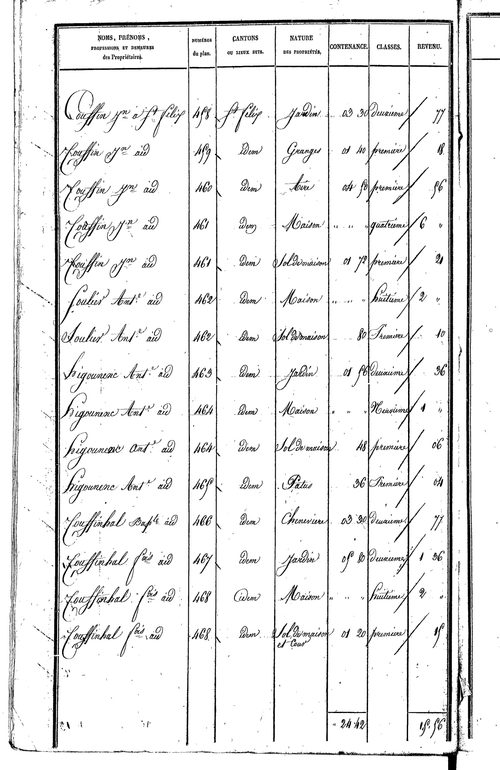 NOMS, PRÉNOMS, PROFESSIONS ET DEMEURES des Propriétaires. NUMÉROS du plan. CANTONS OU LIEUX DITS. NATURE DES PROPRIÉTÉS. CONTENANCE. CLASSES. REVENU.
Couffin Jn à St félix 458 St félix Jardin 03 30 deuxième 77
Couffin Jn aid 459 idem Granges 01 40 première 18
Couffin Jn aid 460 idem Aire 04 50 première 56
Couffin Jn aid 461 idem Maison " " " quatrième 6 "
Couffin Jn aid 461 idem Sol de maison 01 78 première 21
Soulier Ant.e aid 462 idem Maison " " " huitième 2 "
Soulier Ant.e aid 462 idem Sol de maison 80 Première 10
higounenc Ant.e aid 463 idem Jardin 01 56 deuxième 36
higounenc Ant.e aid 464 idem Maison " " " Neuvième 1 "
higounenc ant.e aid 464 idem Sol de maison 48 première 06
higounenc Ant.e aid 465 idem Pâtus 36 Première 04
Couffinhal Bap.te aid 466 idem Chenevière 03 30 deuxième 77
Couffinhal f.ois aid 467 idem Jardin 05 80 deuxième 1 36
Couffinhal f.ois aid 468 idem Maison " " " huitième 2 "
Couffinhal f.ois aid 468 idem Sol de maison 01 20 première 15
et Cour
24 42 15 56